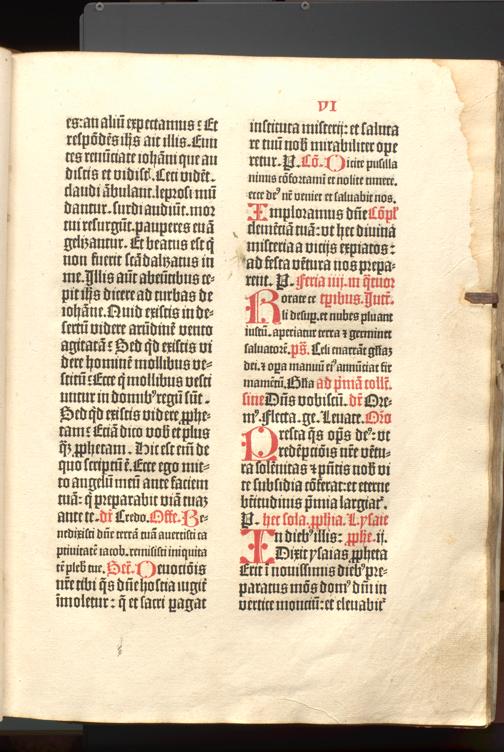 VI
es: an aliū expectamus? Et
respōdēs ihs̄ ait illis. Eun
tes renūciate iohāni que au
distis et vidistˢ. Ceci vidēt.
claudi ābulant. leprosi mū
dantur. surdi audiūt. mor
tui resurgūt. pauperes euā
gelizantur. Et beatus est q̄
non fuerit scādalizatus in
me. Illis aūt abeūtibus ce-
pit ihs̄ dicere ad turbas de
iohāne. Quid existis in de-
sertū videre arūdinē vento
agitatā? Sed qd̄ existis vi
dere hominē mollibus ve-
stitū? Ecce q̄ mollibus vesti
untur in domibꝰ regū sūt.
Sed qd̄ existis videre ꝓphe-
tam? Etiā dico vob̄ et plus
qꝫ̄ ꝓphetam. Hic est eīm de
quo scriptū ē. Ecce ego mit-
to angelū meū ante faciem
tuā: q̄ preparabit viā tuaꝫ
ante te. dr̄ Credo. Offe. Be-
nedixisti dn̄e terrā tuā auertisti ca
ptiuitatē iacob. remisisti iniquita
tē pleb̄ tue. Secr̄. Deuotiōis
nr̄e tibi q̄s dn̄e hostia iugit̄
īmoletur: q̄ et sacri ꝑagat
instituta misterij: et saluta
re tuū nob̄ mirabiliter ope
retur. P. Cō. Dicite pusilla
nimis cōfortamī et nolite timere.
ecce deꝰ nr̄ veniet et saluabit nos.
Imploramus dn̄e Cōpl̄
clemētiā tuā: vt hec diuina
misteria a vicijs expiatos:
ad festa vētura nos prepa-
rent. P. Feria iiij. in q̄tuor
Rorate ce tp̄ibus. Introꝰ.
li desuꝑ. et nubes pluant
iustū. aperiatur terra ⁊ germinet
saluatorē. ps̄. Celi enarrāt gl̄iaꝫ
dei. ⁊ oꝑa manuū eiꝰ annūciat fir
mamētū. Gl̄ia ad pͥmā coll̄.
sine Dn̄s vobiscū. dr̄ Ore-
mꝰ. Flecta. ge. Leuate. Oro
Presta q̄s op̄s deꝰ: vt
redēptiōis nr̄e vētu-
ra solēnitas ⁊ pn̄tis nob̄ vi
te subsidia cōferat: et eterne
btītudinis pͥmia largiat̄.
P. hec sola. ꝓphīa. Lysaie
In diebꝰ illis: ꝓphe. ij.
Dixit ysaias ꝓpheta
Erit ī nouissimis diebꝰ pre-
paratus mōs domꝰ dn̄i in
vertice montiū: et eleuabit̄